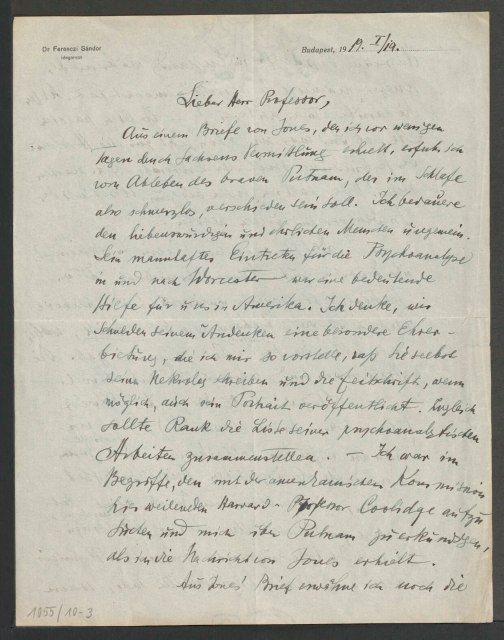 Dr Ferenczi Sándor
idegorvos
Budapest, 19 19. I/19.
Lieber Herr Professor,
Aus einem Briefe von Jones, den ich vor wenigen
Tagen durch Sachsens Vermittlung erhielt, erfuhr ich
vom Ableben des braven Putnam, der im Schlafe
also schmerzlos, verschieden sein soll. Ich bedauere
den liebenswürdigen und ehrlichen Menschen ungemein.
Sein mannhaftes Eintreten für die Psychoanalyse
in und nach Worcester war eine bedeutende
Hilfe für uns in Amerika. Ich denke, wir
schulden seinem Andenken eine besondere Ehrer-
bietung, die ich mir so vorstelle, daß Sie selbst
seinen Nekrolog schreiben und die Zeitschrift, wenn
möglich, auch sein Porträit veröffentlicht. Zugleich
sollte Rank die Liste seiner psychoanalytischen
Arbeiten zusammenstellen. — Ich war im
Begriffe, den mit der amerikanischen Kommission
hier weilenden Harvard-Professor Coolidge aufzu
suchen und mich über Putnam zu erkundigen,
als ich die Nachricht von Jones erhielt.
Aus Jones' Brief erwähne ich noch die
1055/10-3